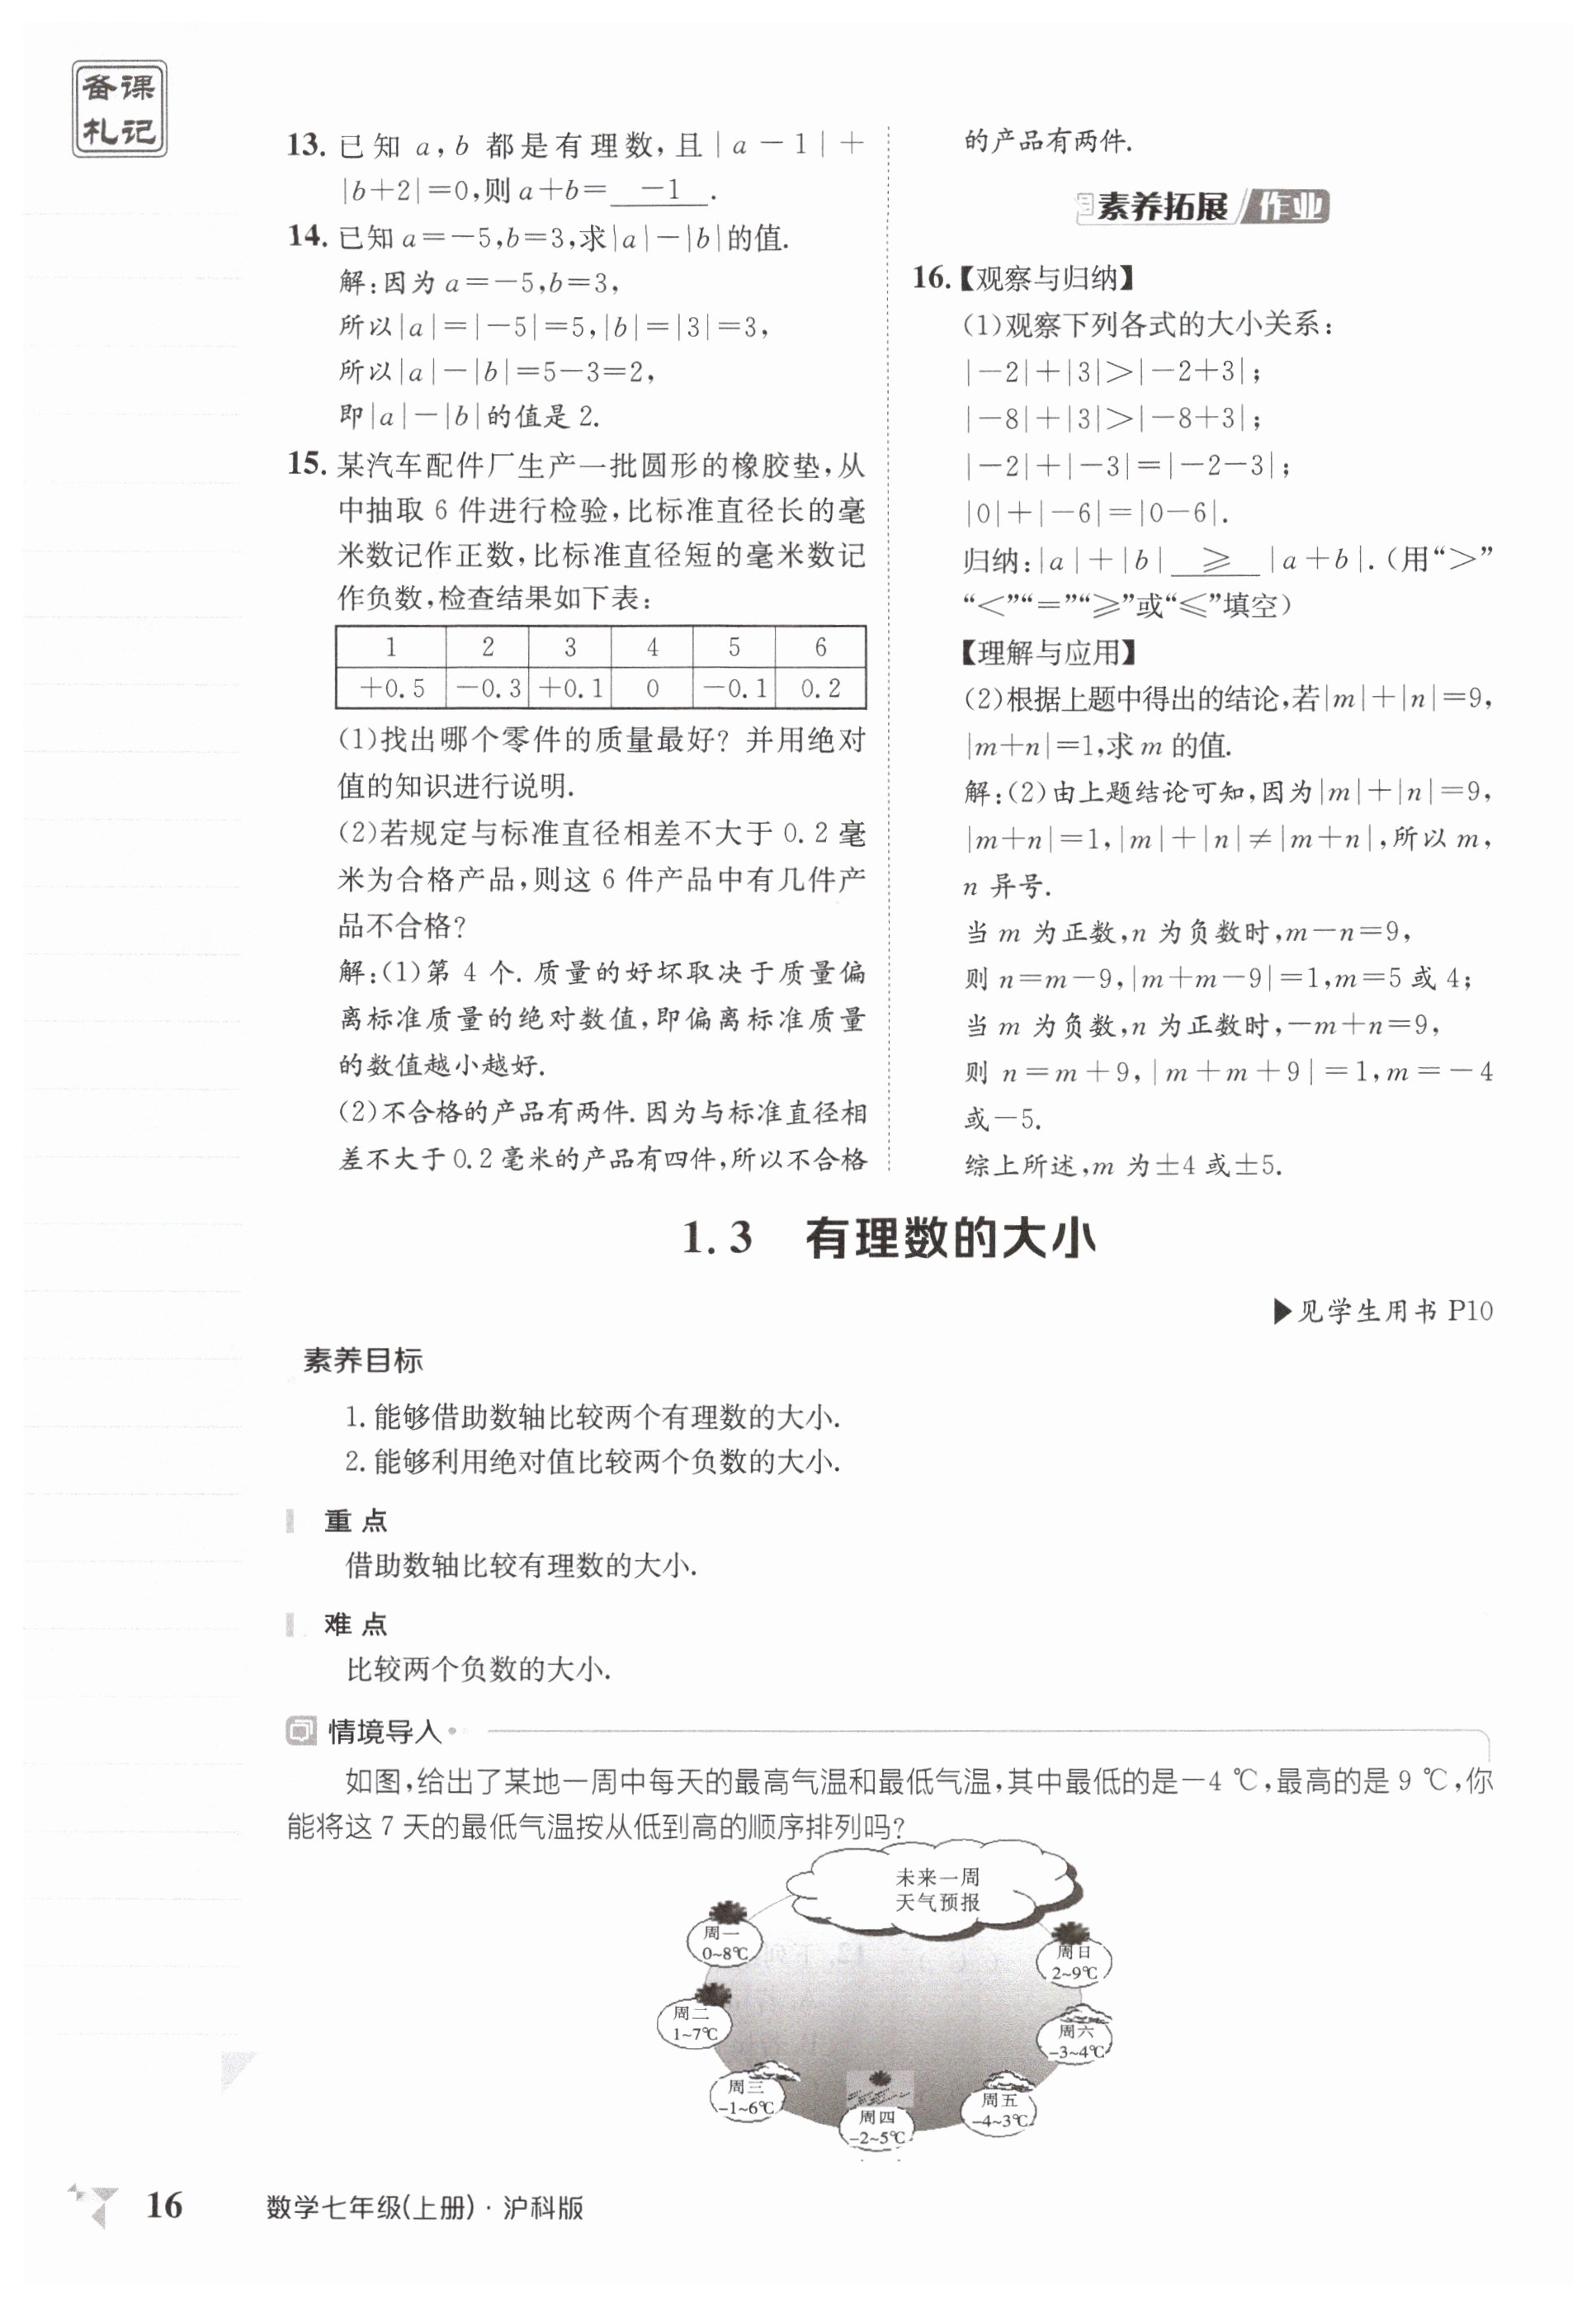 备课
札记
13. 已知 a,b 都是有理数,且|a-1|+
|b+2|=0,则a+b= -1 .
14. 已知a=-5,b=3,求|a|-|b|的值.
解:因为a=-5,b=3,
所以|a|=|-5|=5,|b|=|3|=3,
所以|a|-|b|=5-3=2,
即|a|-|b|的值是2.
15. 某汽车配件厂生产一批圆形的橡胶垫,从
中抽取6件进行检验,比标准直径长的毫
米数记作正数,比标准直径短的毫米数记
作负数,检查结果如下表:
1 2 3 4 5 6
+0.5 -0.3 +0.1 0 -0.1 0.2
(1)找出哪个零件的质量最好?并用绝对
值的知识进行说明.
(2)若规定与标准直径相差不大于0.2毫
米为合格产品,则这6件产品中有几件产
品不合格?
解:(1)第4个.质量的好坏取决于质量偏
离标准质量的绝对数值,即偏离标准质量
的数值越小越好.
(2)不合格的产品有两件.因为与标准直径相
差不大于0.2毫米的产品有四件,所以不合格
的产品有两件.
素养拓展 作业
16.【观察与归纳】
(1)观察下列各式的大小关系:
|-2|+|3|>|-2+3|;
|-8|+|3|>|-8+3|;
|-2|+|-3|=|-2-3|;
|0|+|-6|=|0-6|.
归纳:|a|+|b| ≥ |a+b|.(用“>”
“<”“=”“≥”或“≤”填空)
【理解与应用】
(2)根据上题中得出的结论,若|m|+|n|=9,
|m+n|=1,求m的值.
解:(2)由上题结论可知,因为|m|+|n|=9,
|m+n|=1,|m|+|n|≠|m+n|,所以m,
n异号.
当m为正数,n为负数时,m-n=9,
则n=m-9,|m+m-9|=1,m=5或4;
当m为负数,n为正数时,-m+n=9,
则n=m+9,|m+m+9|=1,m=-4
或-5.
综上所述,m为±4或±5.
1.3 有理数的大小
▶见学生用书P10
素养目标
1.能够借助数轴比较两个有理数的大小.
2.能够利用绝对值比较两个负数的大小.
重点
借助数轴比较有理数的大小.
难点
比较两个负数的大小.
情境导入
如图,给出了某地一周中每天的最高气温和最低气温,其中最低的是-4 ℃,最高的是9 ℃,你
能将这7天的最低气温按从低到高的顺序排列吗?
未来一周
天气预报
周一
0~8℃
周二
1~7℃
周三
-1~6℃
周四
-2~5℃
周五
-4~3℃
周六
-3~4℃
周日
2~9℃
16 数学七年级(上册)·沪科版